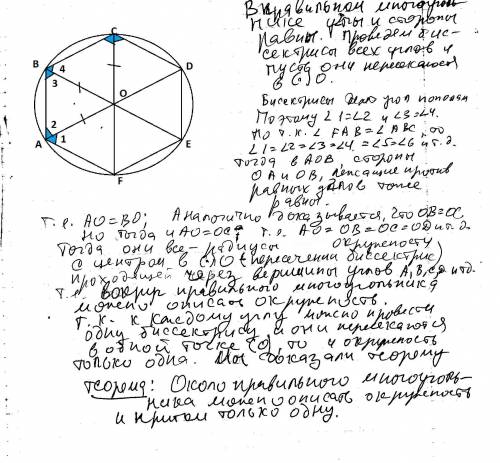 В правильном многоуголь-
нике углы и стороны
равны. Проведем бис-
сектрисы всех углов и
пусть они пересекаются
в (·)O.
Биссектрисы делят угол пополам
Поэтому ∠1=∠2 и ∠3=∠4.
Но т.к. ∠FAB=∠ABC, то
∠1=∠2=∠3=∠4=∠5=∠6 и т.д.
Тогда в AOB, стороны
OA и OB, лежащие против
равных углов тоже
равны.
C
B
4
3
D
O
2
1
A
E
F
т.е. AO=BO; Аналогично доказывается, что OB=OC,
но тогда и AO=OC, т.е. AO=OB=OC=OD и т.д.
Тогда они все - радиусы окружности
с центром в (·)O (пересечении биссектрис)
проходящей через вершины углов A,B,C,D и т.д.
т.е. вокруг правильного многоугольника
можно описать окружность.
Т.к. к каждому углу можно провести
одну биссектрису и они пересекаются
в одной точке (O), то и окружность
только одна. Мы доказали теорему
Теорема: Около правильного многоуголь-
ника можно описать окружность
и притом только одну.